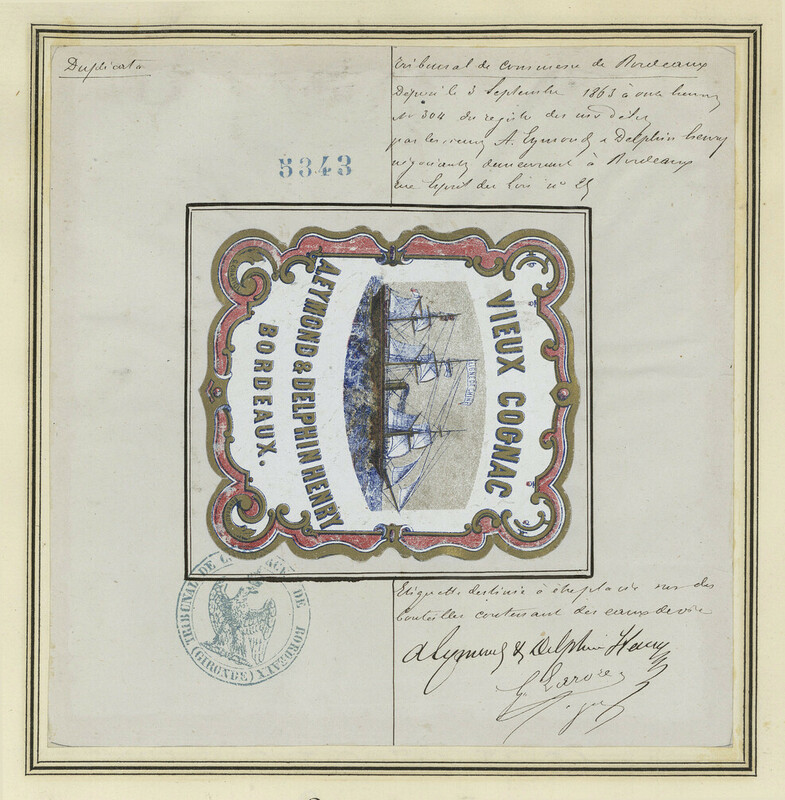 Duplicata
Tribunal de Commerce de Bordeaux
Déposé le 3 Septembre 1863 à onze heures
No 304 du registre des
par les sieurs A. Eymond & Delphin Henry
négociants demeurant à Bordeaux
rue Esprit des Lois no 25
5343
VIEUX COGNAC
A. EYMOND & DELPHIN HENRY
BORDEAUX.
TRIBUNAL DE COMMERCE DE BORDEAUX
(GIRONDE)
Etiquette destinée à être placée sur des
bouteilles contenant des eaux de vie
A Eymond & Delphin Henry
G. Laroze